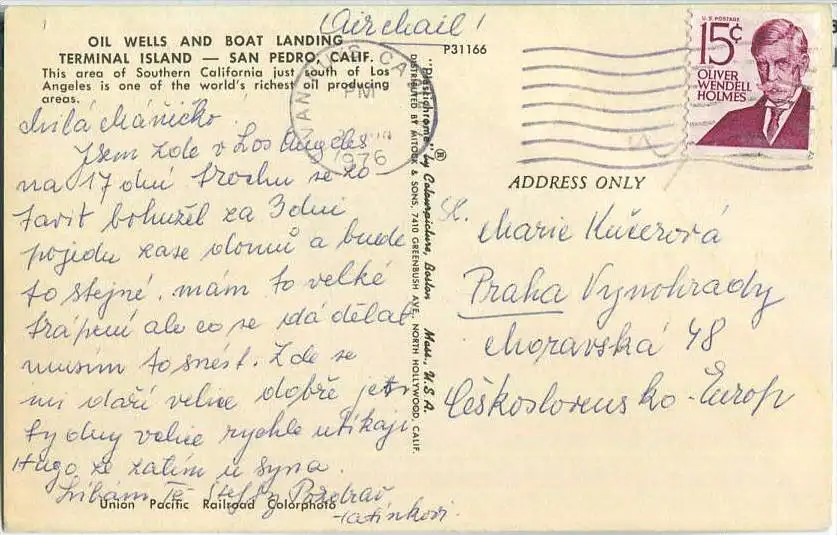 Airmail!
OIL WELLS AND BOAT LANDING
TERMINAL ISLAND — SAN PEDRO, CALIF.
This area of Southern California just south of Los
Angeles is one of the world's richest oil producing
areas.
P31166
Milá Máničko.
Jsem zde v Los Angeles
na 17 dní trochu se zo
tavit bohužel za 3 dni
pojedu zase domů a bude
to stejné. mám to velké
trápení ale co se dá dělat
musím to snést. Zde se
mi daří velice dobře jen
ty dny velice rychle utíkají
Hugo je zatím u syna.
Líbám Tě Pozdrav
tatínkovi.
Union Pacific Railroad Colorphoto
CA
PM
1976
"Plastichrome" ® by Colourpicture, Boston Mass., U.S.A.
DISTRIBUTED BY MITOCK & SONS, 7410 GREENBUSH AVE. NORTH HOLLYWOOD, CALIF.
U.S. POSTAGE
15¢
OLIVER
WENDELL
HOLMES
ADDRESS ONLY
Sl.
Marie Kučerová
Praha Vynohrady
Moravská 48
Československo-Europ